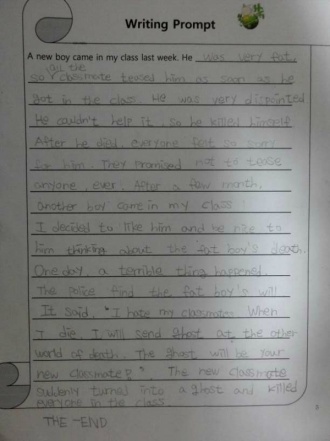 Writing Prompt
A new boy came in my class last week. He was very fat,
all the
so classmate teased him as soon as he
got in the class. He was very dispointed
He couldn't help it, so he killed himself
After he died, everyone felt so sorry
for him. They promised not to tease
anyone, ever. After a few month,
another boy came in my class!
I decided to like him and be nice to
him thinking about the fat boy's death.
One day, a terrible thing happened.
The police find the fat boy's will
It said, "I hate my classmates. When
I die, I will send ghost at the other
world of death. The ghost will be your
new classmate?" The new classmate
suddenly turned into a ghost and killed
everyone in the class
THE END